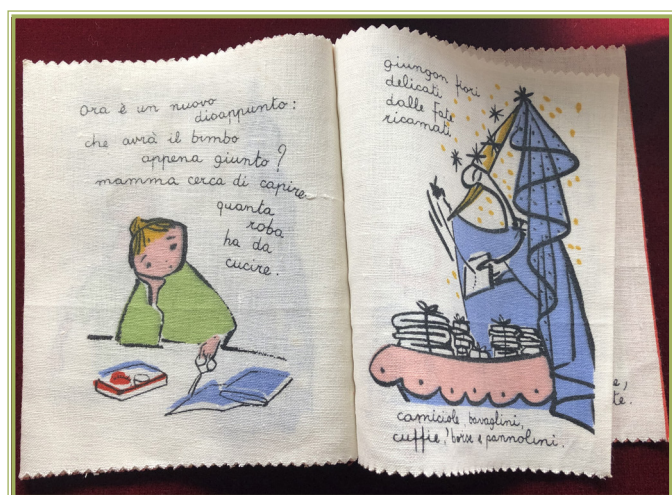 ora è un nuovo
disappunto:
che avrà il bimbo
appena giunto?
mamma cerca di capire
quanta
roba
ha da
cucire.
giungon fiori
delicati
dalle fate
ricamati
camiciole, bavaglini,
cuffie, borse e pannolini.
e,
te.